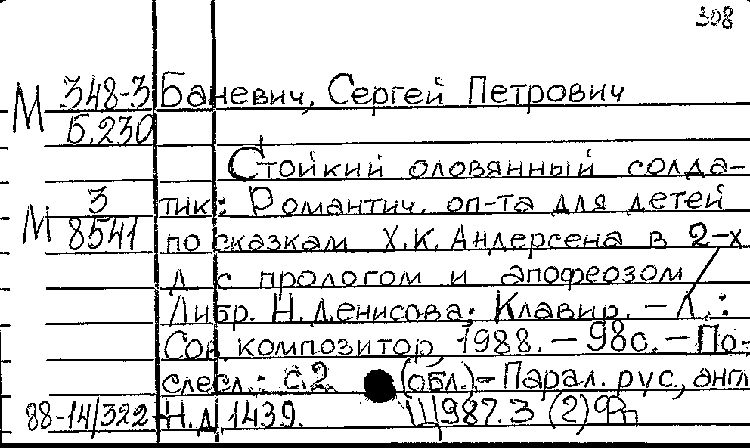 308
М 348-3 Баневич, Сергей Петрович
Б.230
Стойкий оловянный солда-
М 3 тик: Романтич. оп-та для детей
8541 по сказкам Х.К. Андерсена в 2-х
д. с прологом и апофеозом /
Либр. Н. Денисова; Клавир. - Л.:
Сов. композитор, 1988. - 98с. - По-
слесл.: с.2 (обл.) - Парал. рус., англ
88-14/322 Н.д. 1439. Щ987.3 (2)